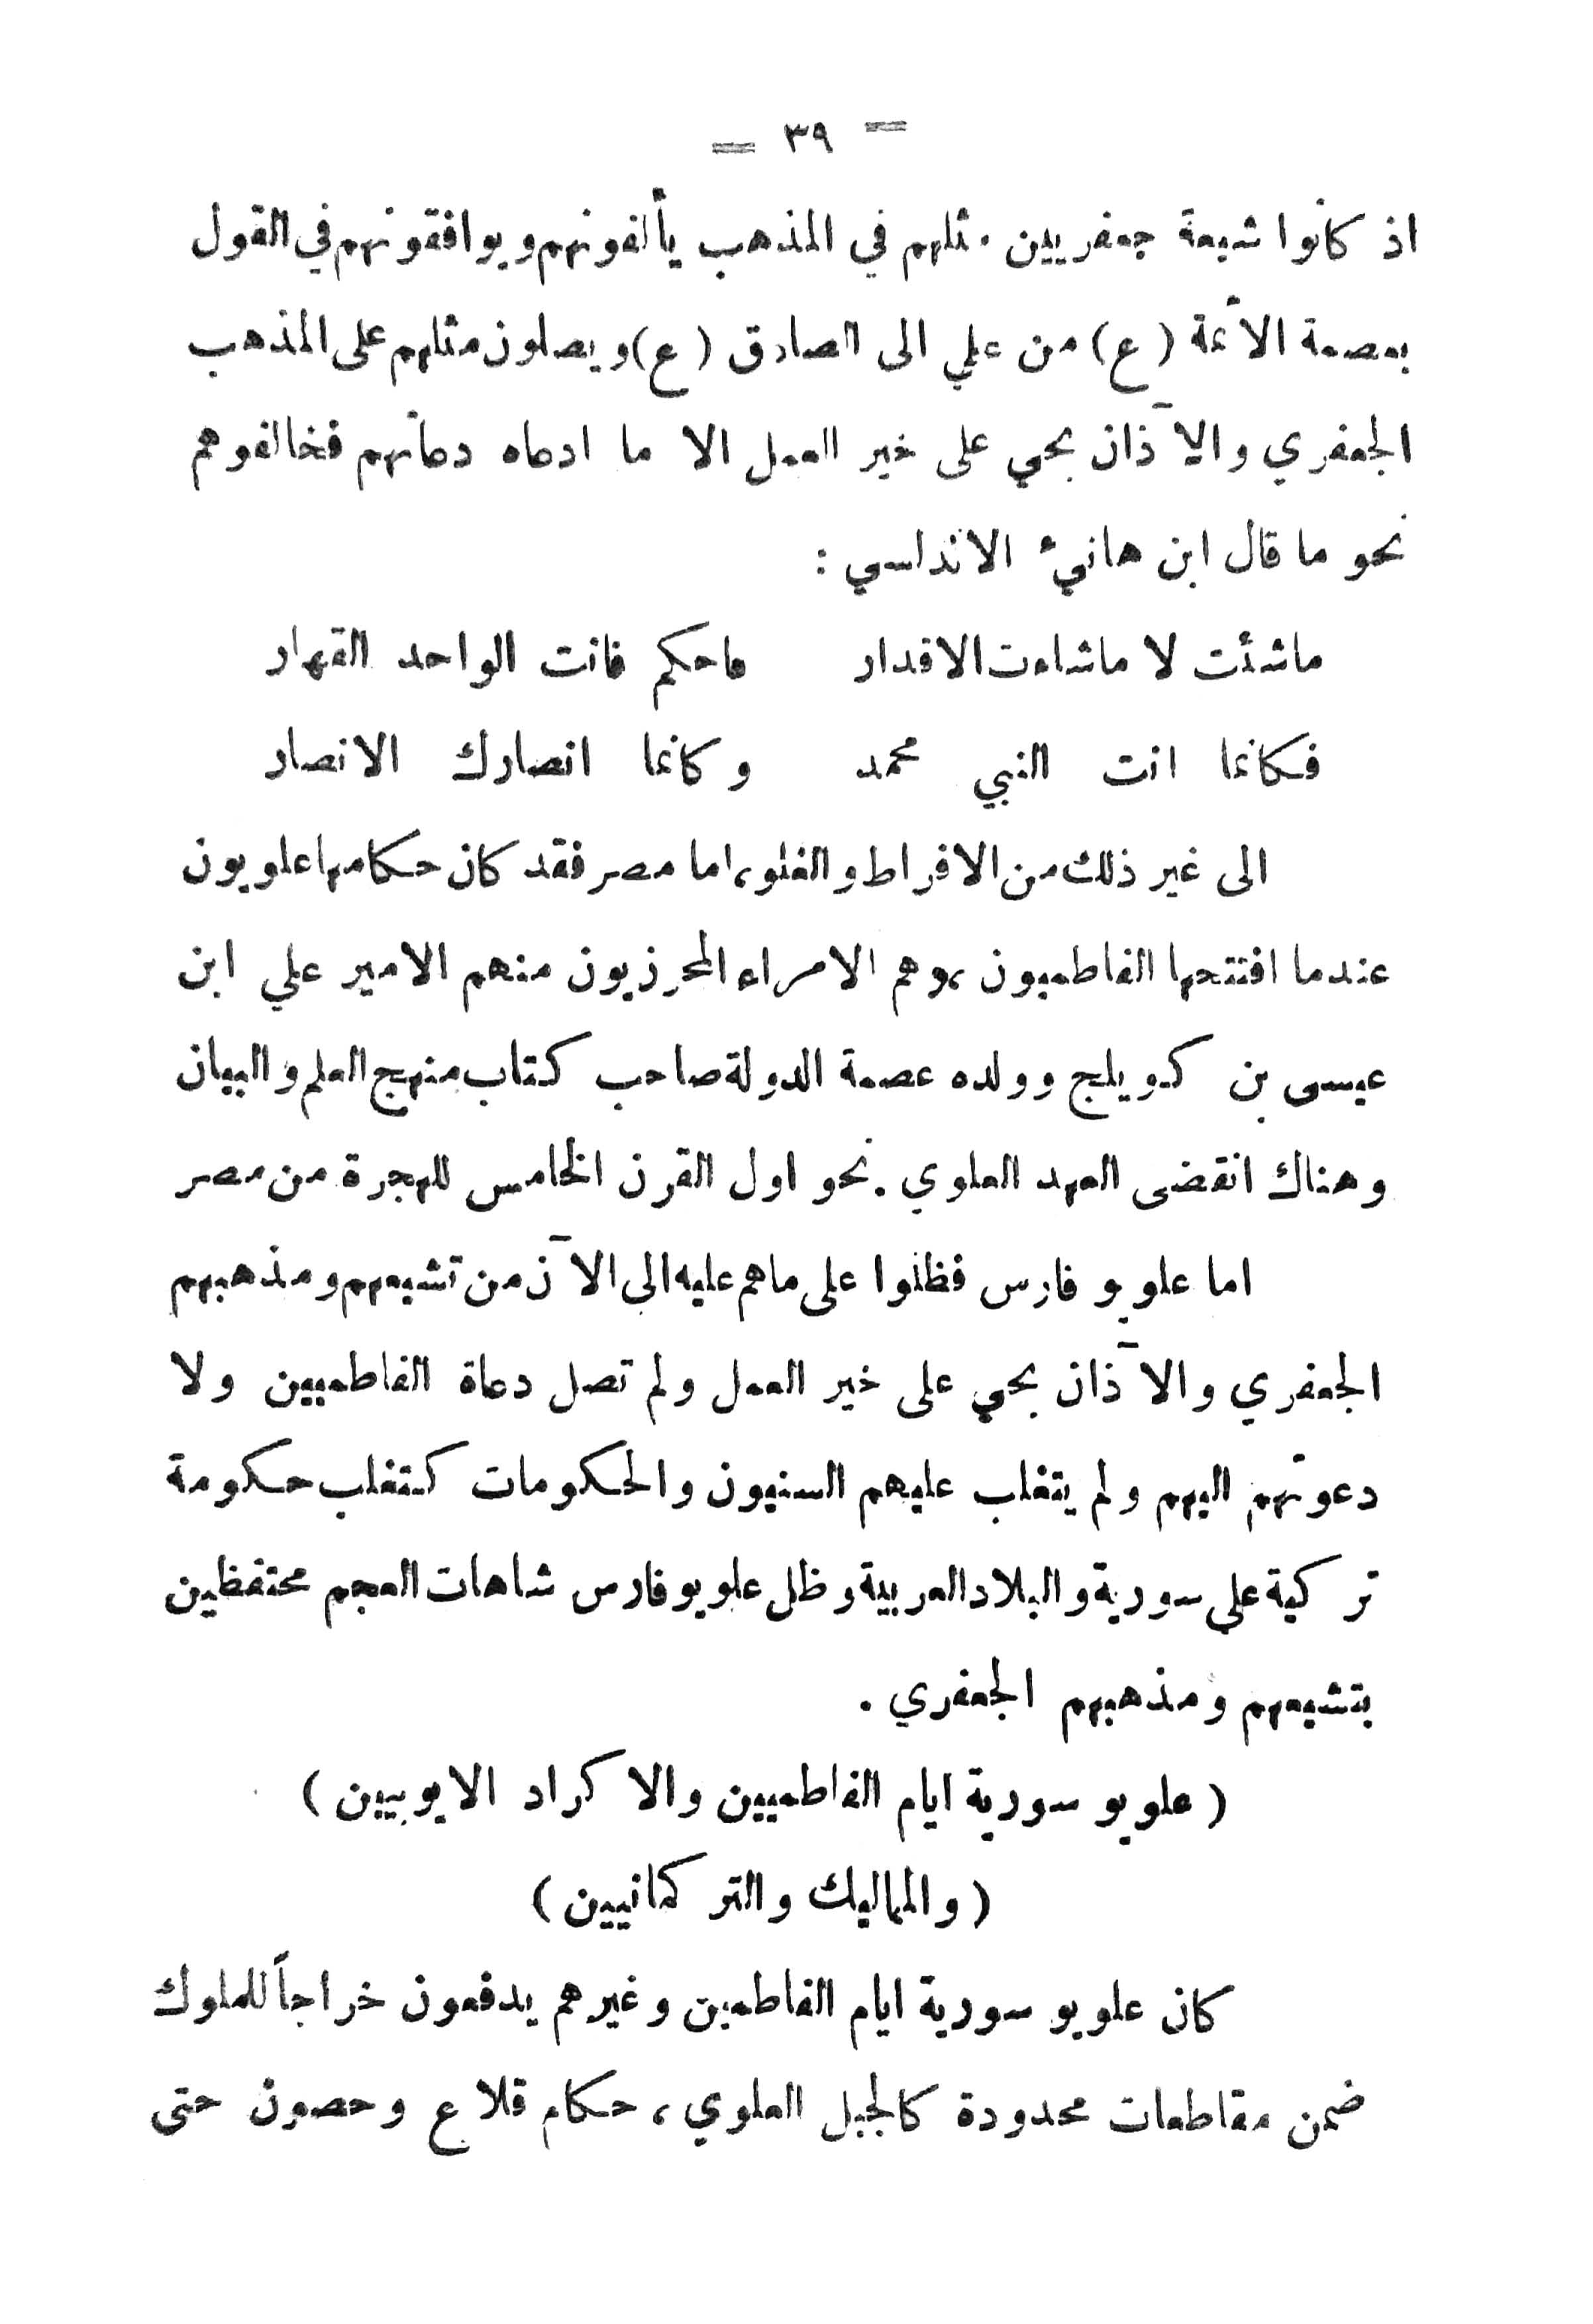 = ٣٩ =
اذ كانوا شيعة جعفريين مثلهم في المذهب يألفونهم ويوافقونهم في القول
بعصمة الأئمة (ع) من علي الى الصادق (ع) ويصلون مثلهم على المذهب
الجعفري والآذان بحي على خير العمل الا ما ادعاه دعاتهم فخالفوهم
نحو ما قال ابن هانيء الاندلسي :
ماشئت لا ماشاءت الاقدار فاحكم فانت الواحد القهار
فكانما انت النبي محمد وكانما انصارك الانصار
الى غير ذلك من الافراط والغلو، اما مصر فقد كان حكامها علويون
عندما افتتحها الفاطميون ، وهم الامراء المحرزيون منهم الامير علي ابن
عيسى بن كويلج وولده عصمة الدولة صاحب كتاب منهج العلم والبيان
وهناك انقضى العهد العلوي . نحو اول القرن الخامس للهجرة من مصر
اما علويو فارس فظلوا على ماهم عليه الى الآن من تشيعهم ومذهبهم
الجعفري والآذان بحي على خير العمل ولم تصل دعاة الفاطميين ولا
دعوتهم اليهم ولم يتغلب عليهم السنيون والحكومات كتغلب حكومة
تركية على سورية والبلاد العربية وظل علويو فارس شاهات العجم محتفظين
بتشيعهم ومذهبهم الجعفري .
( علويو سورية ايام الفاطميين والاكراد الايوبيين )
( والمماليك والتركمانيين )
كان علويو سورية ايام الفاطمين وغيرهم يدفعون خراجاً للملوك
ضمن مقاطعات محدودة كالجبل العلوي ، حكام قلاع وحصون حتى